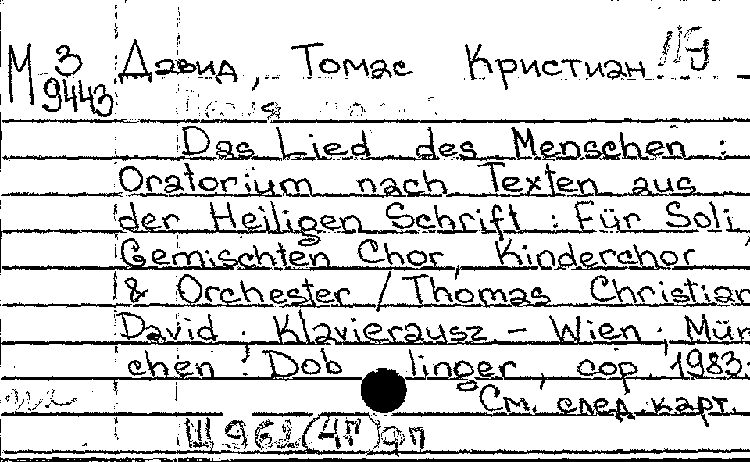 М 3 Давид, Томас Кристиан
9443
Das Lied des Menschen :
Oratorium nach Texten aus
der Heiligen Schrift : Für Soli,
Gemischten Chor, Kinderchor
& Orchester / Thomas Christian
David ; Klavierausz – Wien ; Mün
chen : Doblinger, cop. 1983.
См. след. карт.
Ш 962(4П)